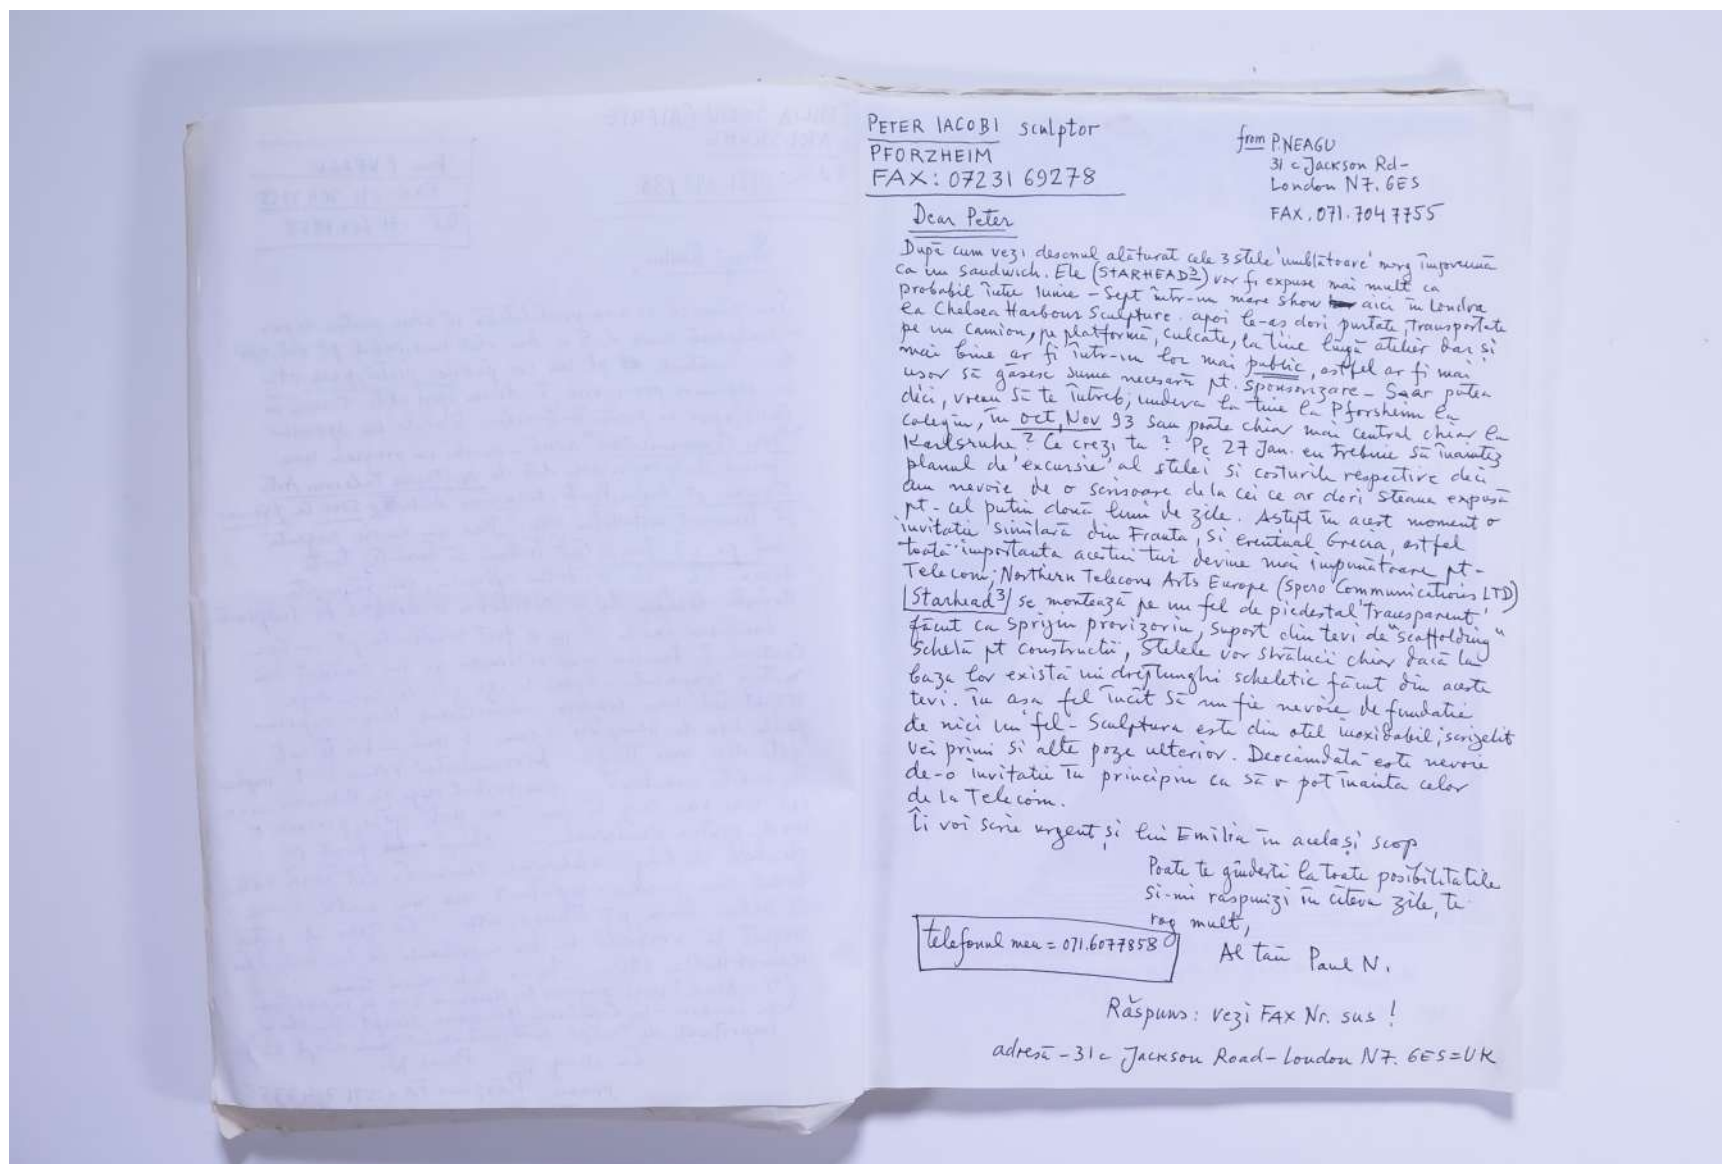 PETER IACOBI sculptor
PFORZHEIM
FAX: 07231 69278
from P.NEAGU
31 c Jackson Rd-
London N7. 6ES
FAX. 071.7047755
Dear Peter
După cum vezi desenul alăturat cele 3 stele 'umblătoare' merg împreună
ca un sandwich. Ele (STARHEAD3) vor fi expuse mai mult ca
probabil între Iunie - Sept într-un mare show aici în Londra
la Chelsea Harbour Sculpture. apoi le-as dori purtate, transportate
pe un camion, pe platformă, culcate, la tine lîngă atelier dar si
mai bine ar fi într-un loc mai public, astfel ar fi mai
usor să găsesc suma necesară pt. sponsorizare - S-ar putea
deci, vreau să te întreb; undeva la tine la Pforsheim la
colegiu, în oct, Nov 93 sau poate chiar mai central chiar la
Karlsruhe? Ce crezi tu? Pe 27 Jan. eu trebuie să înaintez
planul de 'excursie' al stelei si costurile respective deci
am nevoie de o scrisoare de la cei ce ar dori steaua expusă
pt - cel putin două luni de zile. Astept în acest moment o
invitatie similară din Franta, si eventual Grecia, astfel
toată importanta acestui tur devine mai impunătoare pt -
Telecom; Northern Telecom Arts Europe (Spero Communications LTD)
Starhead3 se montează pe un fel de piedestal 'transparent'
făcut ca sprijin provizoriu, suport din tevi de "scaffolding"
schelă pt constructii, Stelele vor străluci chiar dacă la
baza lor există un dreptunghi scheletic făcut din aceste
tevi. în asa fel încît să nu fie nevoie de fundatie
de nici un fel - Sculptura este din otel inoxidabil;
vei primi si alte poze ulterior. Deocamdată este nevoie
de-o invitatie în principiu ca să o pot înainta celor
de la Telecom.
Îi voi scrie urgent și lui Emilia în același scop
Poate te gîndesti la toate posibilitatile
si-mi răspunzi în cîteva zile, te
rog mult,
telefonul meu = 071.6077858
Al tău Paul N.
Răspuns: vezi FAX Nr. sus!
adresă - 31 c Jackson Road - London N7. 6ES = UK